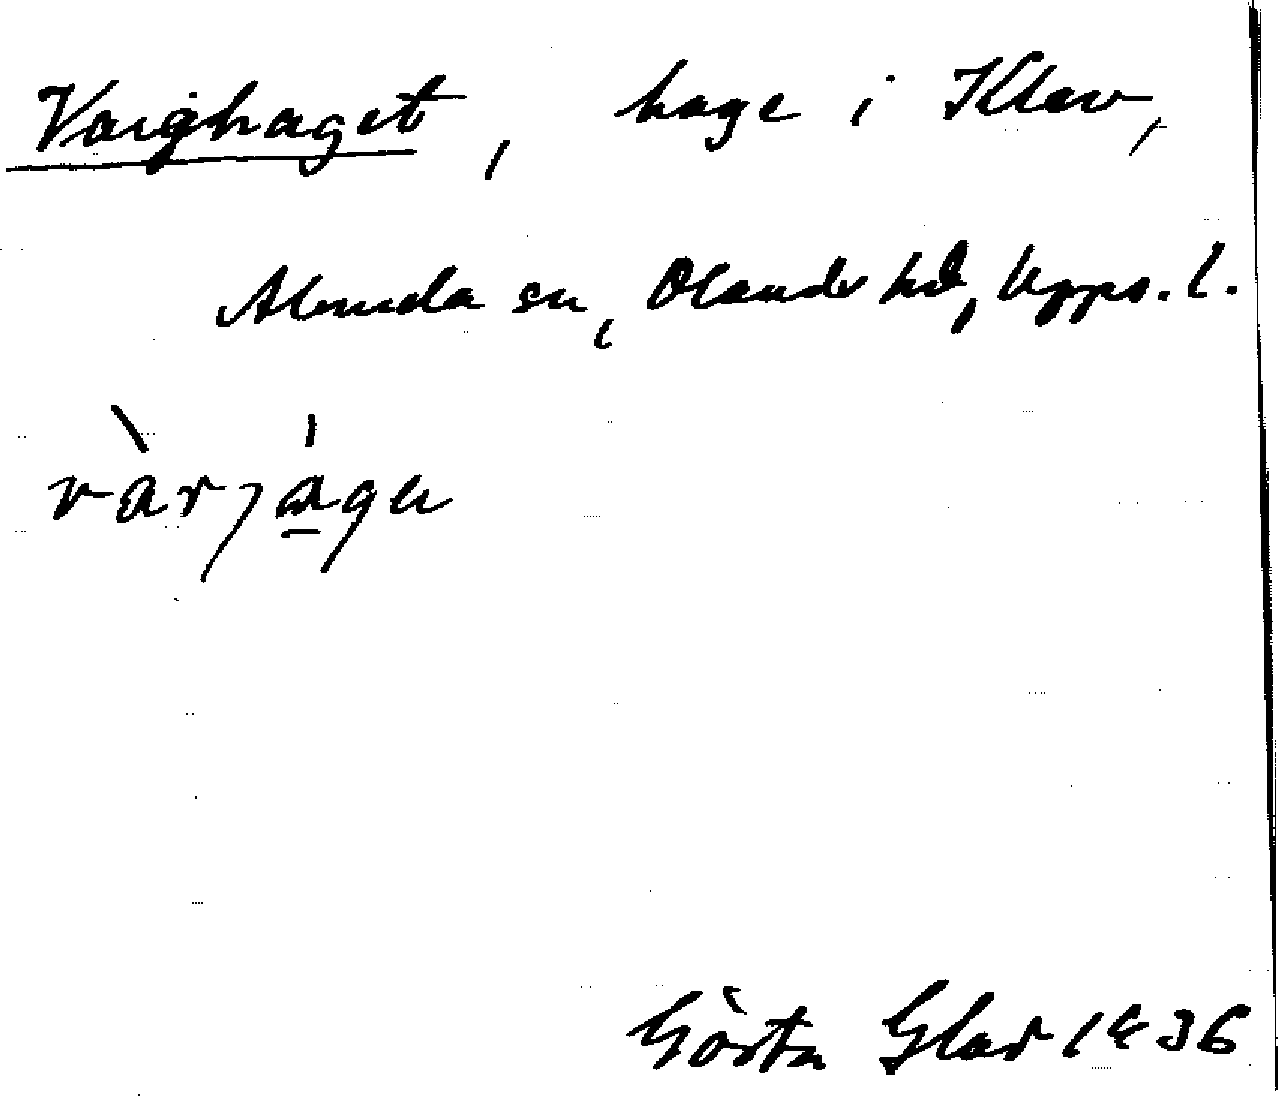 Varghaget, hage i Klev,
Alunda sn, Olands hd, Upps. l.
vàrjágu
Gösta Glav 1936